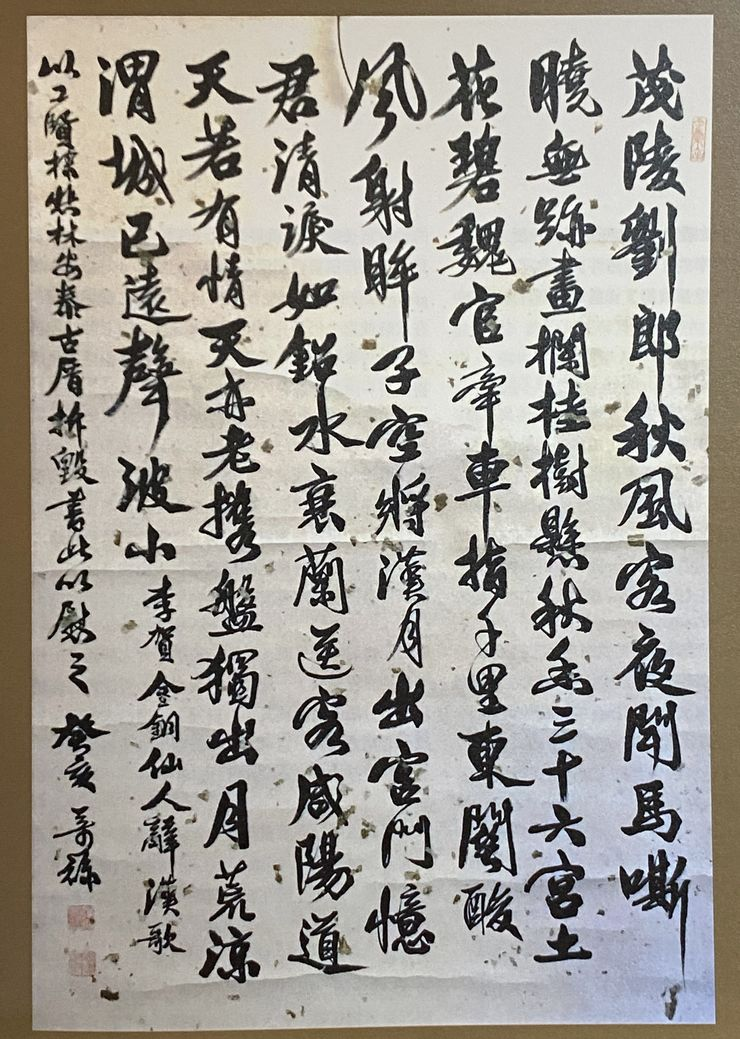 茂陵劉郎秋風客夜聞馬嘶
曉無跡畫欄桂樹懸秋香三十六宮土
花碧魏官牽車指千里東關酸
風射眸子空將漢月出宮門憶
君清淚如鉛水衰蘭送客咸陽道
天若有情天亦老攜盤獨出月荒涼
渭城已遠聲波小 李賀金銅仙人辭漢歌
林安泰古厝拆毀書此以慰之 癸亥